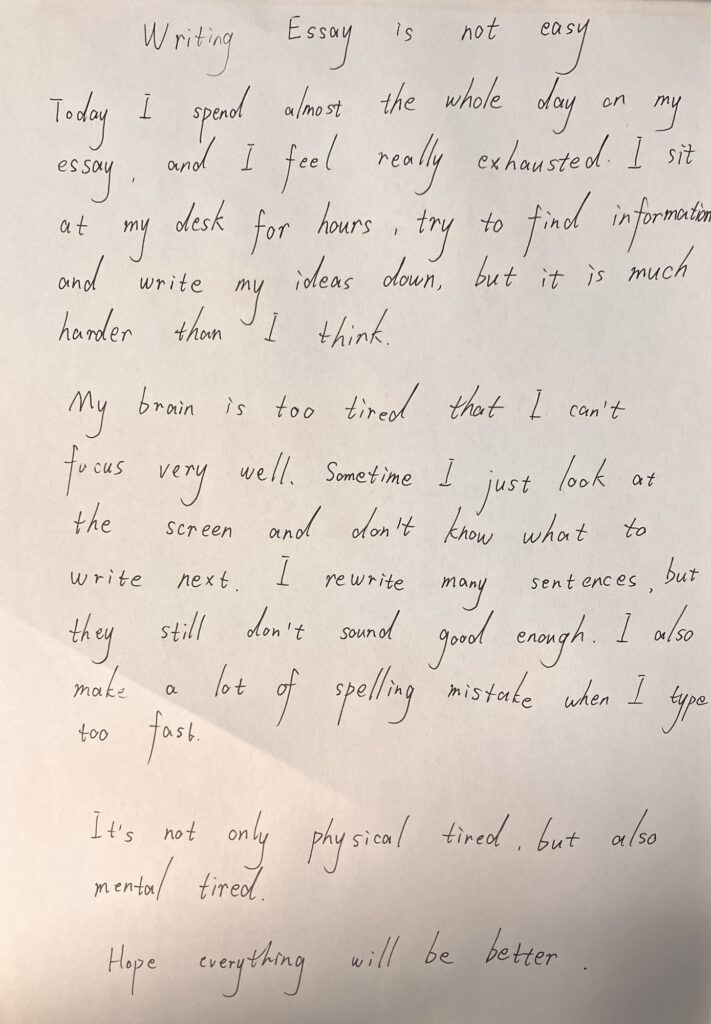 Writing Essay is not easy
Today I spend almost the whole day on my
essay, and I feel really exhausted. I sit
at my desk for hours, try to find information
and write my ideas down, but it is much
harder than I think.
My brain is too tired that I can't
focus very well. Sometime I just look at
the screen and don't know what to
write next. I rewrite many sentences, but
they still don't sound good enough. I also
make a lot of spelling mistake when I type
too fast.
It's not only physical tired, but also
mental tired.
Hope everything will be better.